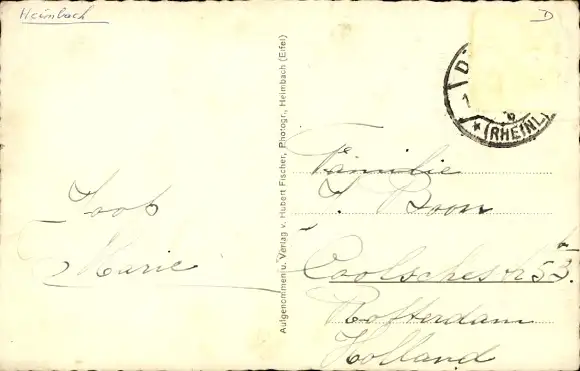 Heimbach
D
D
1
b
* (RHEINL.
Aufgenommen u. Verlag v. Hubert Fischer, Photogr., Heimbach (Eifel)
Joob
Marie
Familie
J. Boon
Coolschestr 53 b.
Rotterdam
Holland